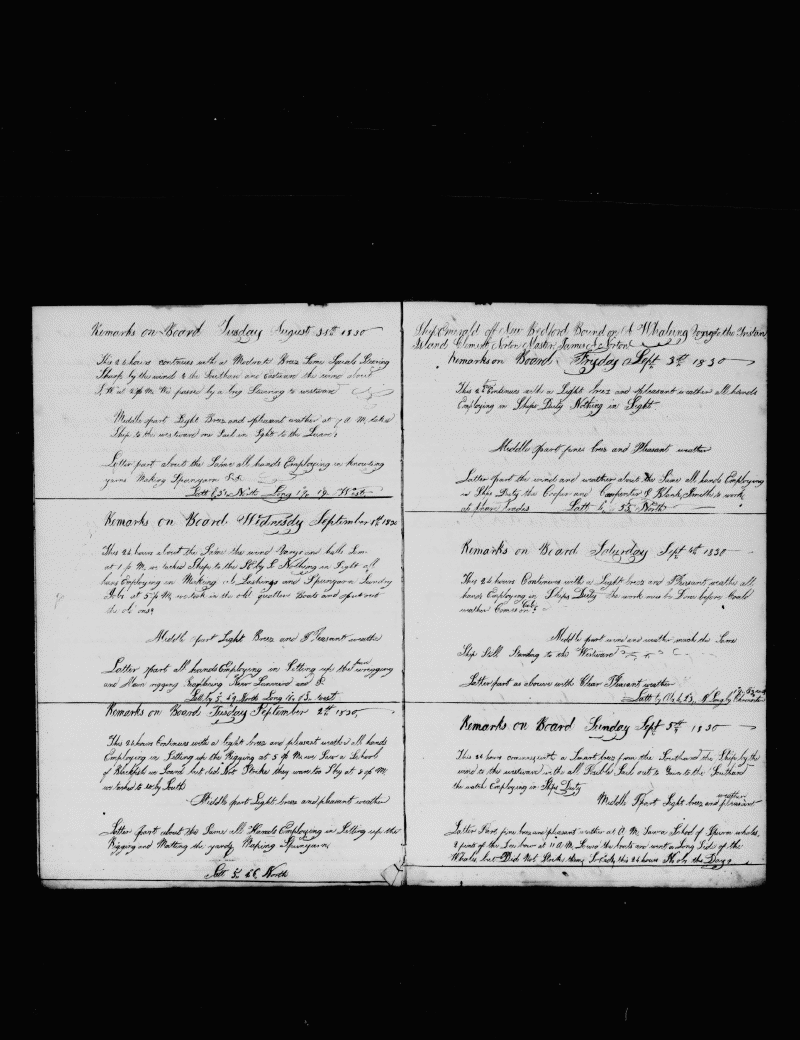 Remarks on Board Tusday August 31st 1830
This 24 hours continues with a Modrate Brez Some Squals Stearing
Sharp by the wind to the Southard and Eastward the wind about
S, W at 2 P M We passed by a brig Stearing to westward
Middle part Light Brez and pleasant weather at 7 A M tacked
Ship to the westward one Sail in Sight to the
Latter part about the Same all hands Employing in knotting
yarns Making Spunyarn &c
Latt 6, 5 North Long 17 19 West
Remarks on Board Widnesdy September 1th 1830
This 24 hours about the Same the wind
at 1 P M, we tacked Ship to the W by S Nothing in Sight all
hans Employing in Making Lashings and Spunyarn Sundry
Jobs at 5 P M, we took in the old quarter Boats and
the old ones
Middle part Light Brez and Pleasant weather
Latter part all hands Employing in Setting up the fore wrigging
and Main rigging New Lanierd and &
Latt by 5, 49 North Long 18 03 West
Remarks on Board Tusday September 2th 1830,
This 24 hours Continues with a light brez and pleasant weather all hands
Employing in Setting up the Rigging at 3 P M, we Saw a School
of Blackfish we Loard but did Not Strike they were too Shy at 2 P M
we tacked to W by South
Middle part Light brez and pleasant weather
Latter part about the Same all Hands Employing in Setting up the
Rigging and Matting the yards Maping Spunyarn
Latt 5, 46 North
Ship Emerald off New Bedford Bound on A Whaling Voyage to the Indian
Island Clement Norton Master James A Norton
Remarks on Board Fryday Sept 3th 1830
This 24 Continues with a Light brez and pleasant weather all hands
Employing in Ships Duty Nothing in Sight
Middle part fines brez and Pleasant weather
Latter part the wind and weather about the Same all hands Employing
in Ships Duty the Cooper and Carpenter & Black Smith to work
at thare Trades Latt 4, 55 North
Remarks on Board Saturday Sept 4th 1830
This 24 hours Continues with a Light brez and Pleasant weather all
hands Employing in Ships Duty The work must be Done before Could
weather Comes on
Middle part wind and weather much the Same
Ship Still Standing to the Westward
Latter part as above with Clear Pleasant weather
Latt by Ob 4, 23, N Long by Chronometer
Remarks on Board Sunday Sept 5th 1830
This 24 hours comences with a Smart brez from the Southard the Ship by the
wind to the westward with all Posible Sail out to Gain to the Southard
the watch Employing in Ships Duty
Middle Part Light brez and pleasant weather
Latter Part fine brez and pleasant weather at A M, Saw a School of Sperm whales
2 points of the Lee bow at 11 A M, Lowed the boats and went a Long Side of the
Whales but Did Not Strike them So Ends this 24 hours